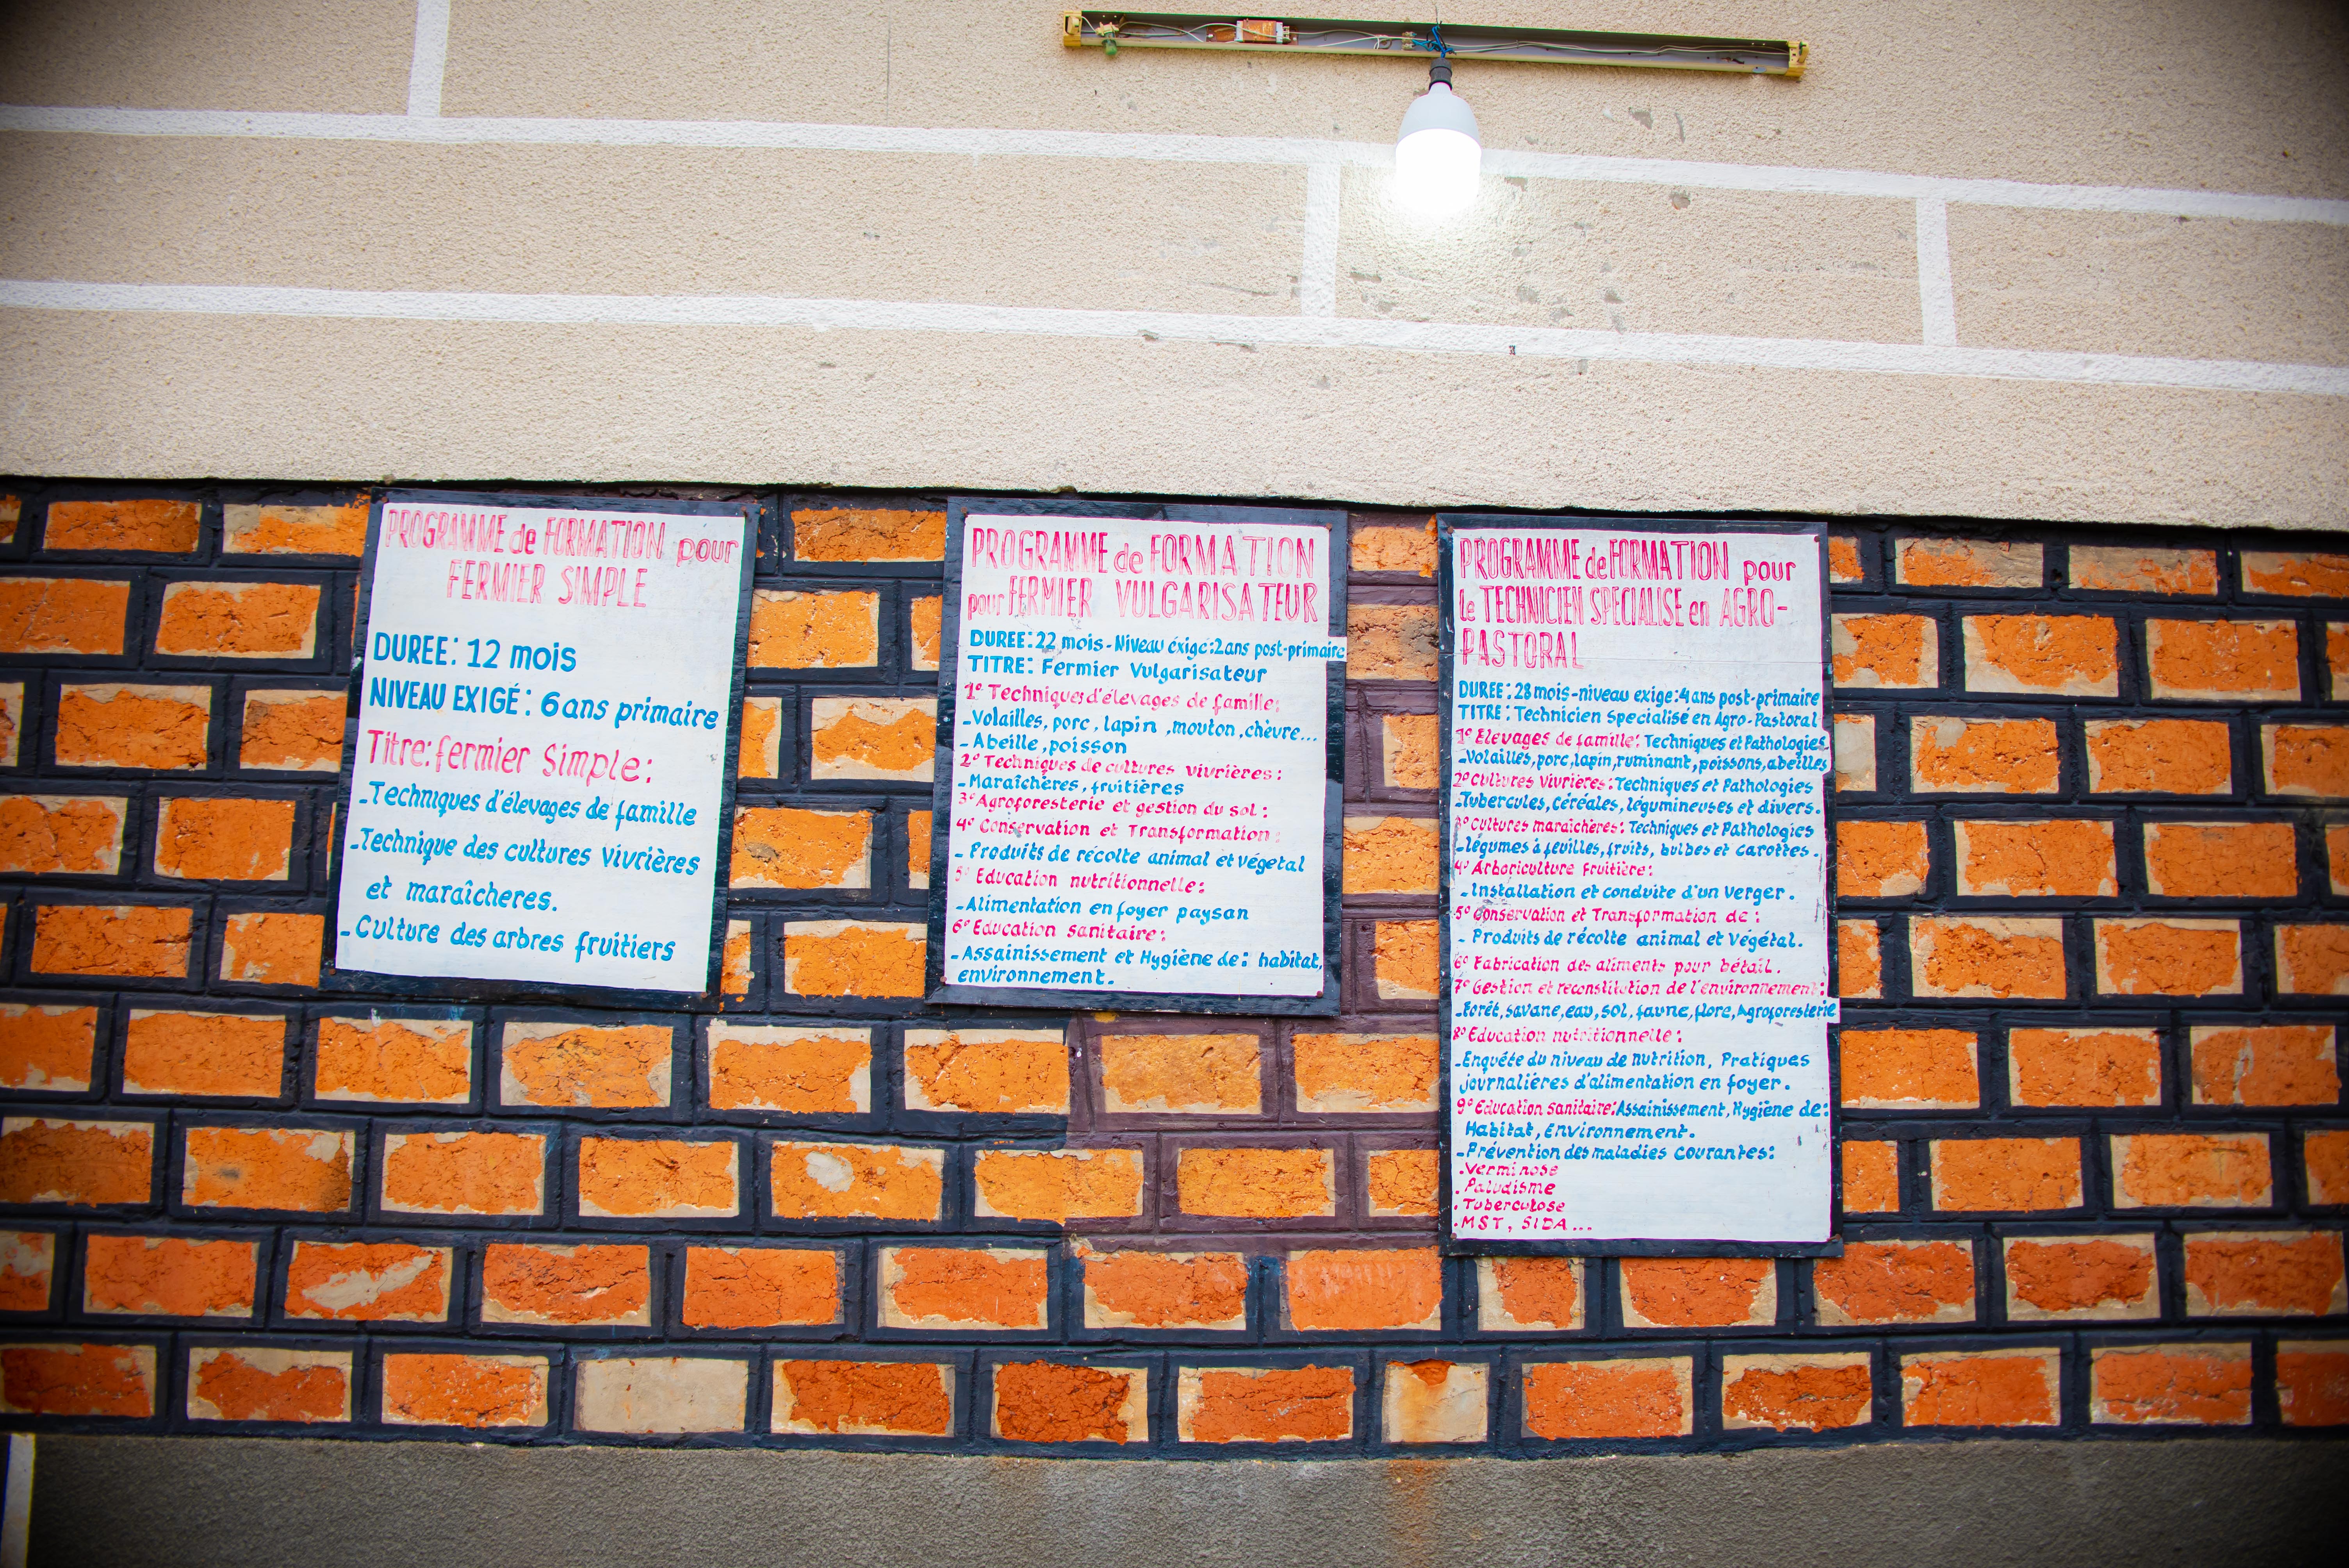 PROGRAMME de FORMATION pour
FERMIER SIMPLE
DUREE: 12 mois
NIVEAU EXIGÉ: 6 ans primaire
Titre: fermier Simple:
-Techniques d'élevages de famille
-Technique des cultures vivrières
et maraîcheres.
-Culture des arbres fruitiers
PROGRAMME de FORMATION
pour FERMIER VULGARISATEUR
DUREE: 22 mois - Niveau éxigé: 2ans post-primaire
TITRE: Fermier Vulgarisateur
1° Techniques d'élevages de famille:
-Volailles, porc, lapin, mouton, chèvre...
- Abeille, poisson
2° Techniques de cultures vivrières:
-Maraîchères, fruitières
3° Agroforesterie et gestion du sol:
4° Conservation et Transformation:
- Produits de récolte animal et végétal
5° Education nutritionnelle:
-Alimentation en foyer paysan
6° Education sanitaire:
-Assainissement et Hygiène de: habitat,
environnement.
PROGRAMME de FORMATION pour
le TECHNICIEN SPECIALISE en AGRO-
PASTORAL
DUREE: 28 mois - niveau exige: 4 ans post-primaire
TITRE: Technicien Specialisé en Agro-Pastoral
1° Elevages de famille: Techniques et Pathologies
-Volailles, porc, lapin, ruminant, poissons, abeilles
2° Cultures Vivrières: Techniques et Pathologies
-Tubercules, céréales, légumineuses et divers.
3° Cultures maraîchères: Techniques et Pathologies
-légumes à feuilles, fruits, bulbes et carottes.
4° Arboriculture fruitière:
-Installation et conduite d'un verger.
5° Conservation et Transformation de:
- Produits de récolte animal et Végétal.
6° Fabrication des aliments pour bétail.
7° Gestion et reconstitution de l'environnement:
-Forêt, savane, eau, sol, faune, flore, Agroforesterie
8° Education nutritionnelle:
-Enquête du niveau de nutrition, Pratiques
journalières d'alimentation en foyer.
9° Education sanitaire: Assainissement, Hygiène de:
Habitat, Environnement.
-Prévention des maladies courantes:
.Verminose
. Paludisme
. Tuberculose
.MST, SIDA...